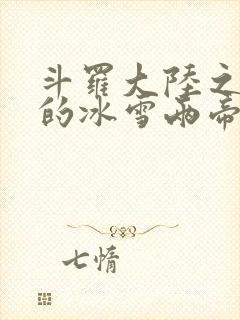 斗羅大陸之
的冰雪兩帝
七情